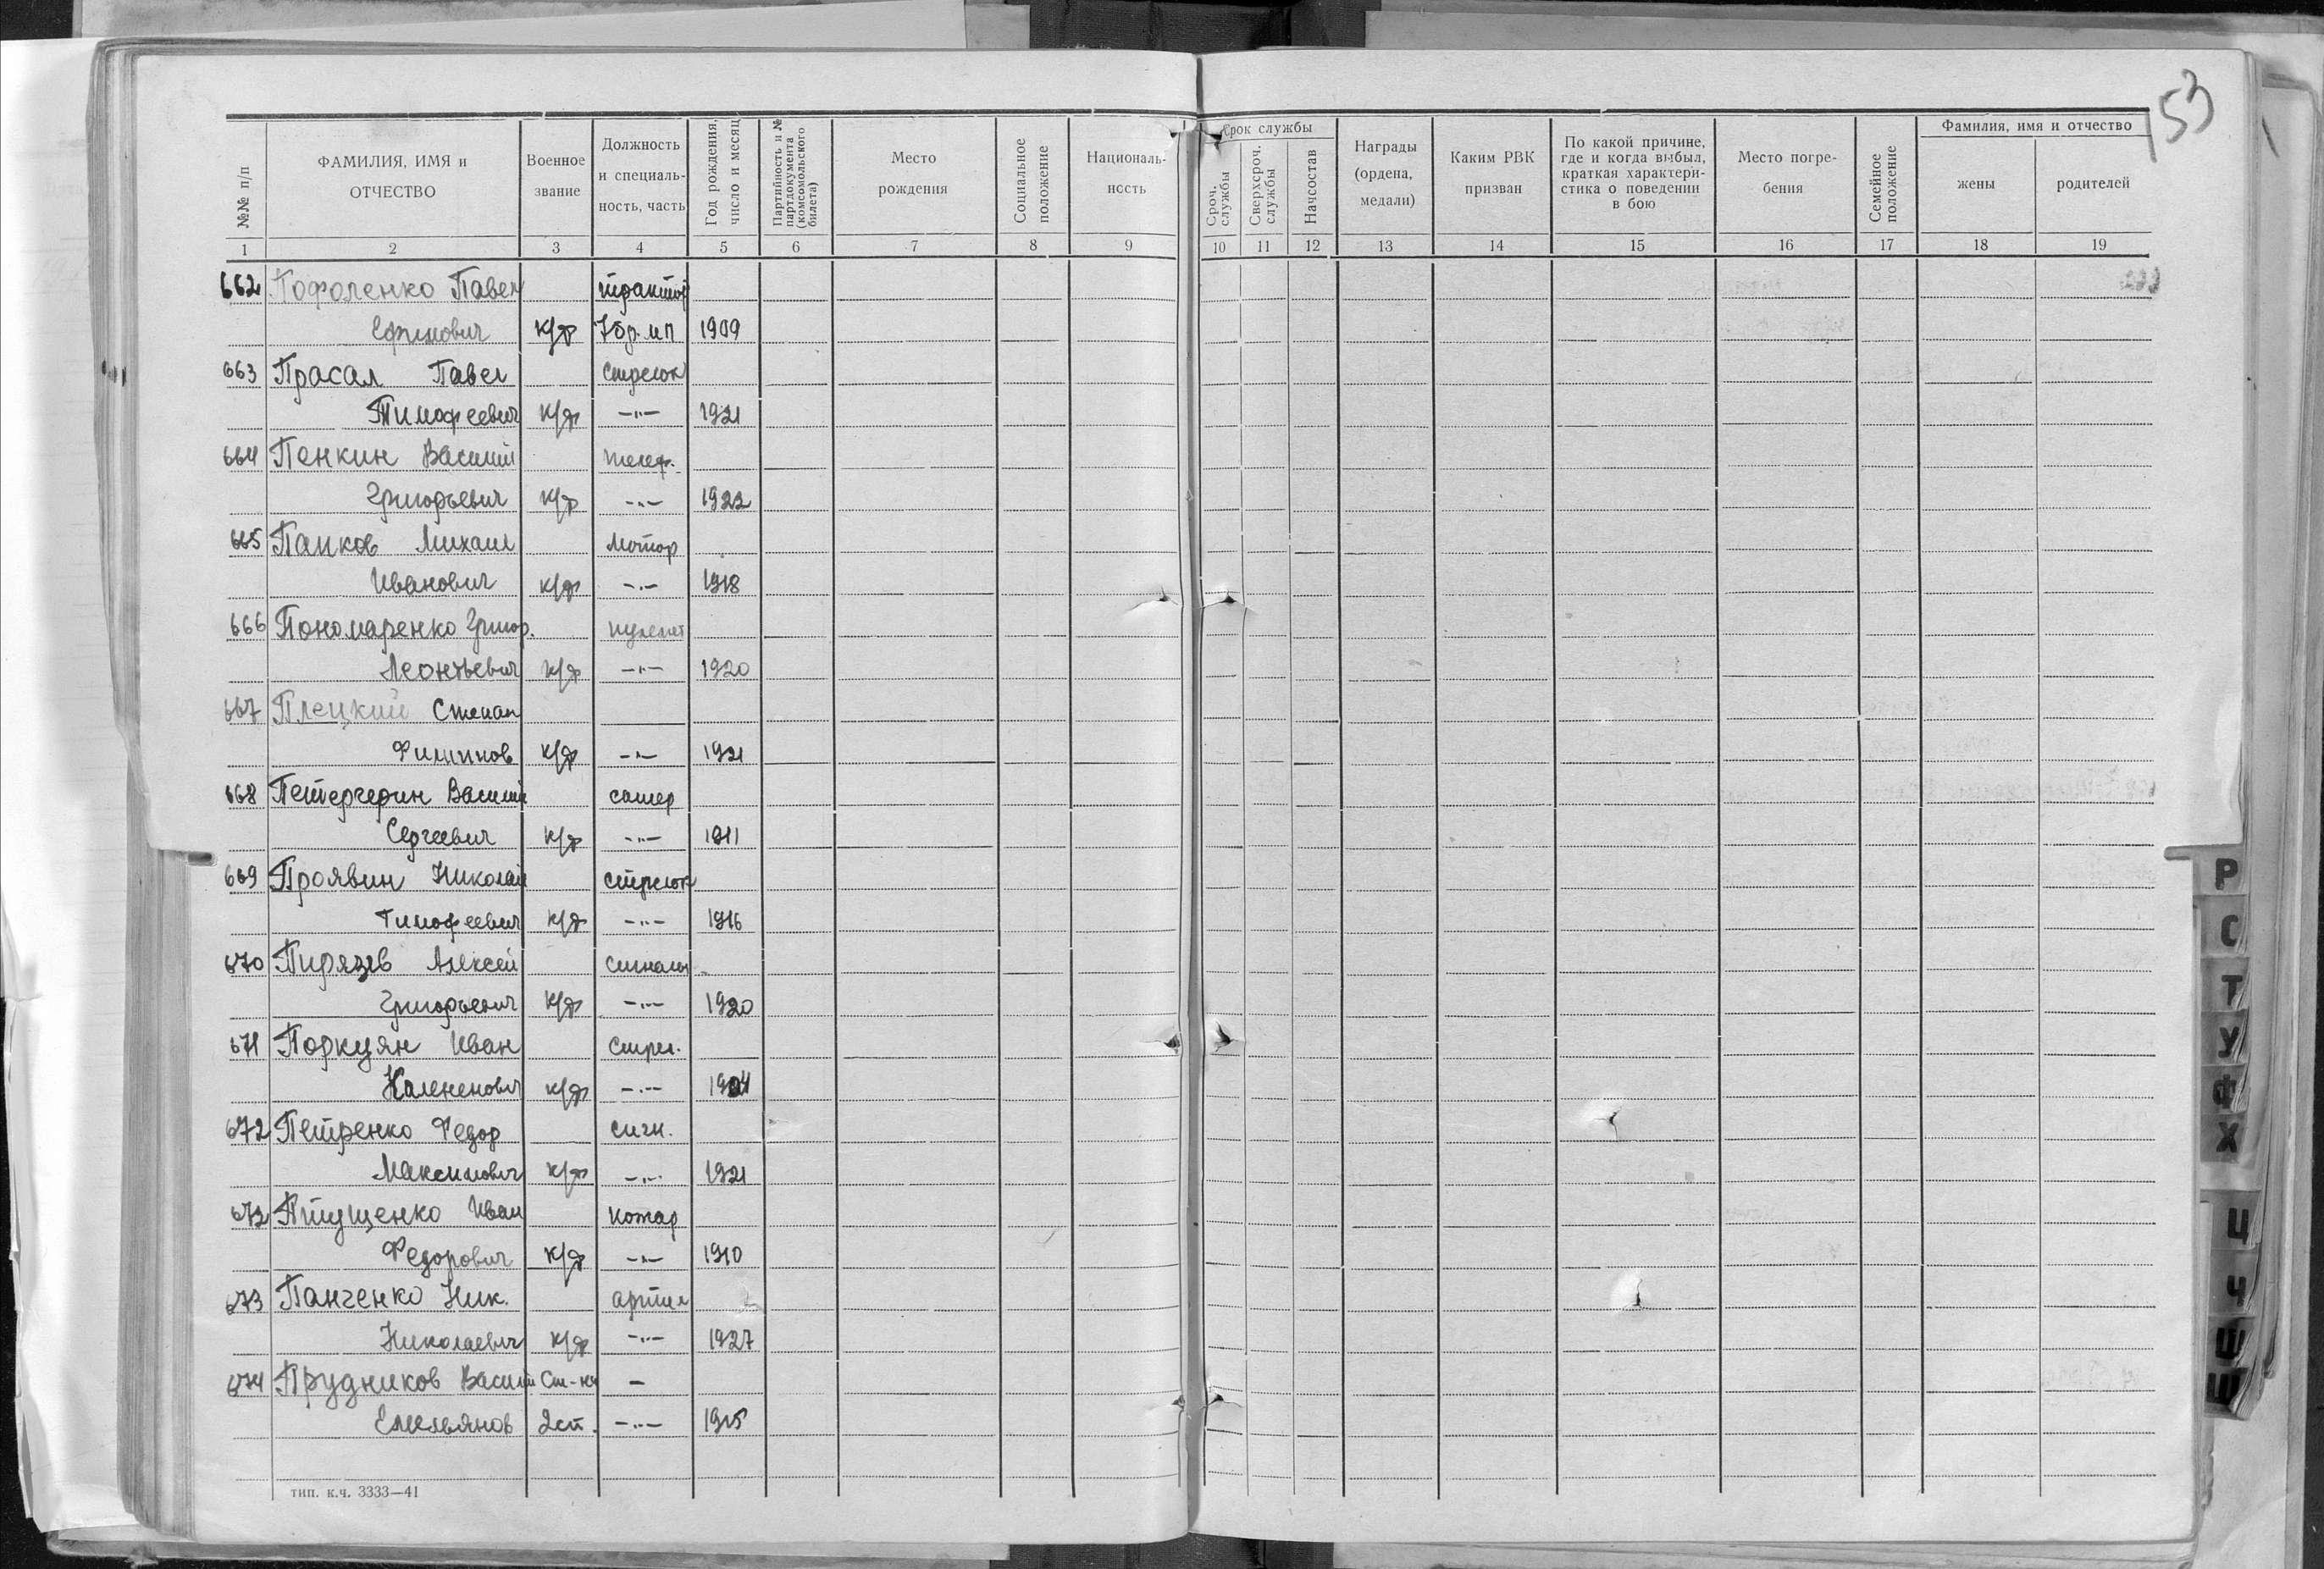 53
№№ п/п
ФАМИЛИЯ, ИМЯ и ОТЧЕСТВО
Военное звание
Должность и специаль-ность, часть
Год рождения, число и месяц
Партийность и № партдокумента (комсомольского билета)
Место рождения
Социальное положение
Националь-ность
Срок службы
Сроч. службы
Сверхсроч. службы
Начсостав
Награды (ордена, медали)
Каким РВК призван
По какой причине, где и когда выбыл, краткая характери-стика о поведении в бою
Место погре-бения
Семейное положение
Фамилия, имя и отчество
жены
родителей
1 2 3 4 5 6 7 8 9 10 11 12 13 14 15 16 17 18 19
662 Павел
Ефимович к/ф 7бр. мп 1909
663 Прасал Павел стрелок
Тимофеевич к/ф -"- 1921
664 Пенкин Василий телеф.
Григорьевич к/ф -"- 1922
665 Папков Михаил мотор
Иванович к/ф -"- 1918
666 Пономаренко Григор. пулемет
Леонтьевич к/ф -"- 1920
667 Плецкий Степан
Филиппов к/ф -"- 1921
668 Василий сапер
Сергеевич к/ф -"- 1911
669 Проявин Николай стрелок
Тимофеевич к/ф -"- 1916
670 Пирязев Алексей
Григорьевич к/ф -"- 1920
671 Поркуян Иван стрел.
к/ф -"- 1904
672 Петренко Федор сигн.
Максимович к/ф -"- 1921
672 Птущенко Иван кочар
Федорович к/ф -"- 1910
673 Панченко Ник. артил
Николаевич к/ф -"- 1927
674 Прудников Василий –
Емельянов 2 ст. -"- 1915
тип. к.ч. 3333—41
Р
С
Т
У
Ф
Х
Ц
Ч
Ш
Щ